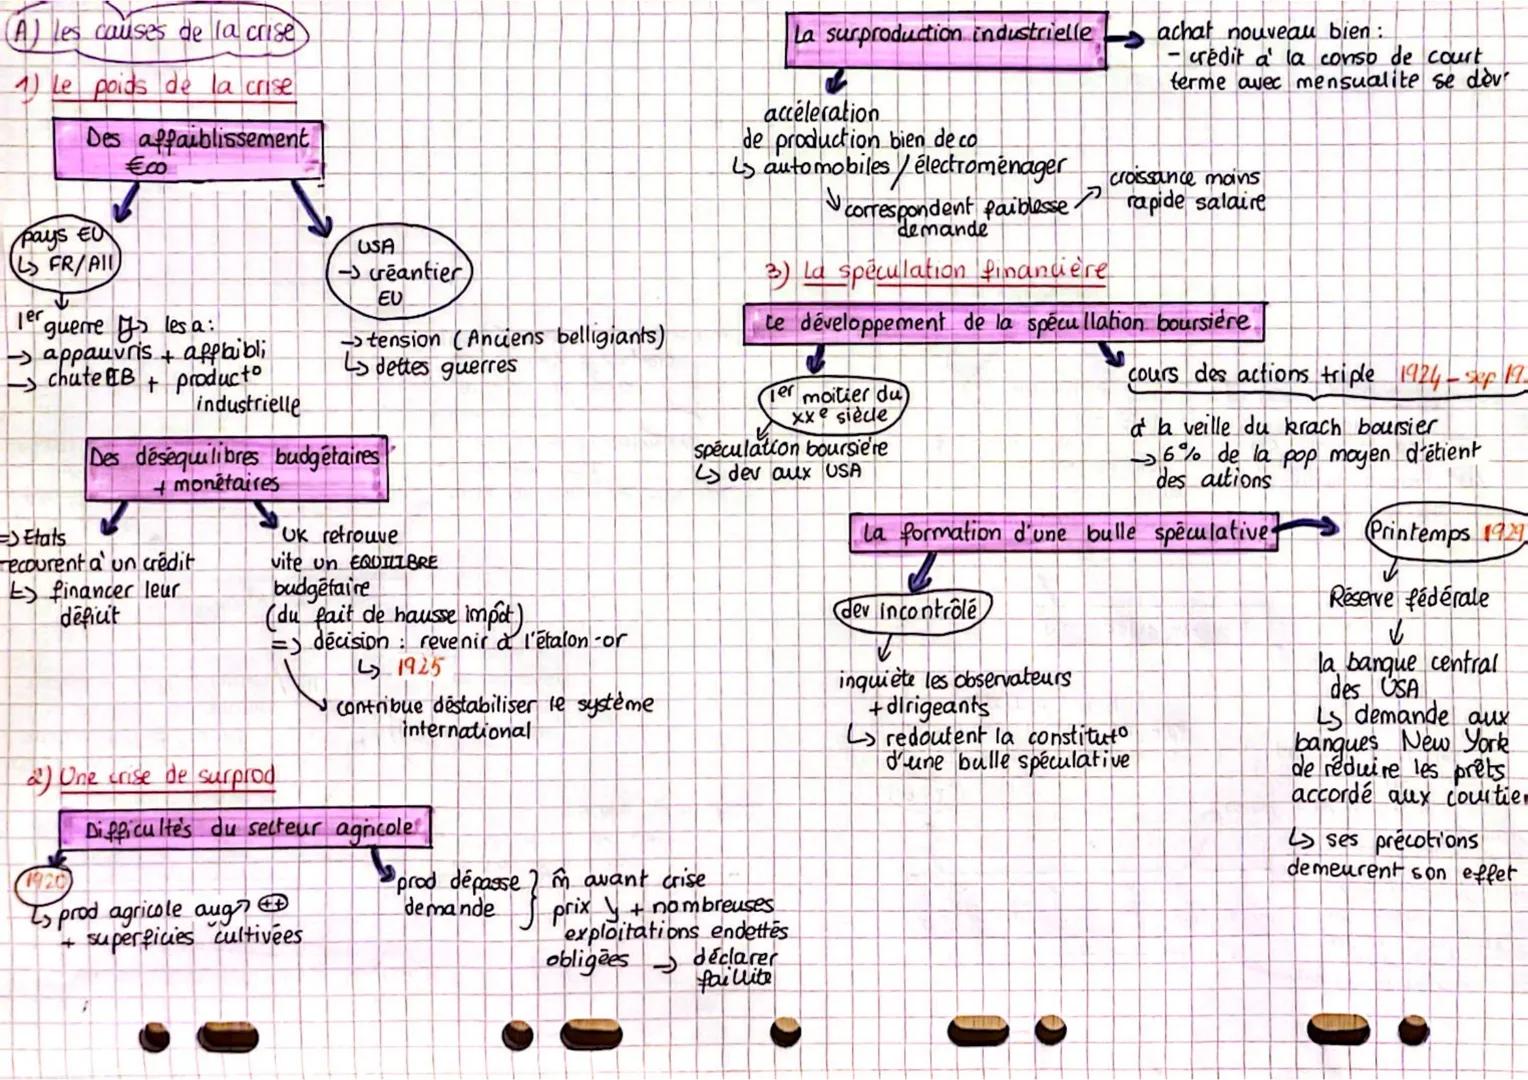 A) les causes de la crise
1) Le poids de la crise
Des affaiblissement
€co
pays EU
↳ FR/All
1er guerre ↳ les a:
→ appauvris + affaibli
→ chute PIB + producto
industrielle
USA
→ créantier
EU
→ tension (Anciens belligiants)
↳ dettes guerres
Des déséquilibres budgétaires
+ monétaires
=> Etats
recourent à un crédit
↳ financer leur
déficit
UK retrouve
vite un EQUILIBRE
budgétaire
(du fait de hausse impôt)
=> décision : revenir à l'étalon-or
↳ 1925
contribue déstabiliser le système
international
2) Une crise de surprod
Difficultés du secteur agricole
1920
↳ prod agricole aug ↗ ++
+ superficies cultivées
prod dépasse
demande
m̂ avant crise
prix ↘ + nombreuses
exploitations endettés
obligées → déclarer
faillite
La surproduction industrielle
→ achat nouveau bien :
- crédit à la conso de court
terme avec mensualite se dév
accéleration
de production bien de co
↳ automobiles / électroménager
correspondent faiblesse
demande
croissance moins
rapide salaire
3) La spéculation financière
Le développement de la spécullation boursière
1er moitier du
XXe siècle
spéculation boursière
↳ dev aux USA
cours des actions triple 1924 - sep 19
à la veille du krach boursier
→ 6% de la pop moyen d'étient
des actions
La formation d'une bulle spéculative
dev incontrôlé
inquiète les observateurs
+ dirigeants
↳ redoutent la constituto
d'une bulle spéculative
Printemps 1929
Réserve fédérale
la banque central
des USA
↳ demande aux
banques New York
de réduire les prêts
accordé aux courtier
↳ ses précotions
demeurent son effet